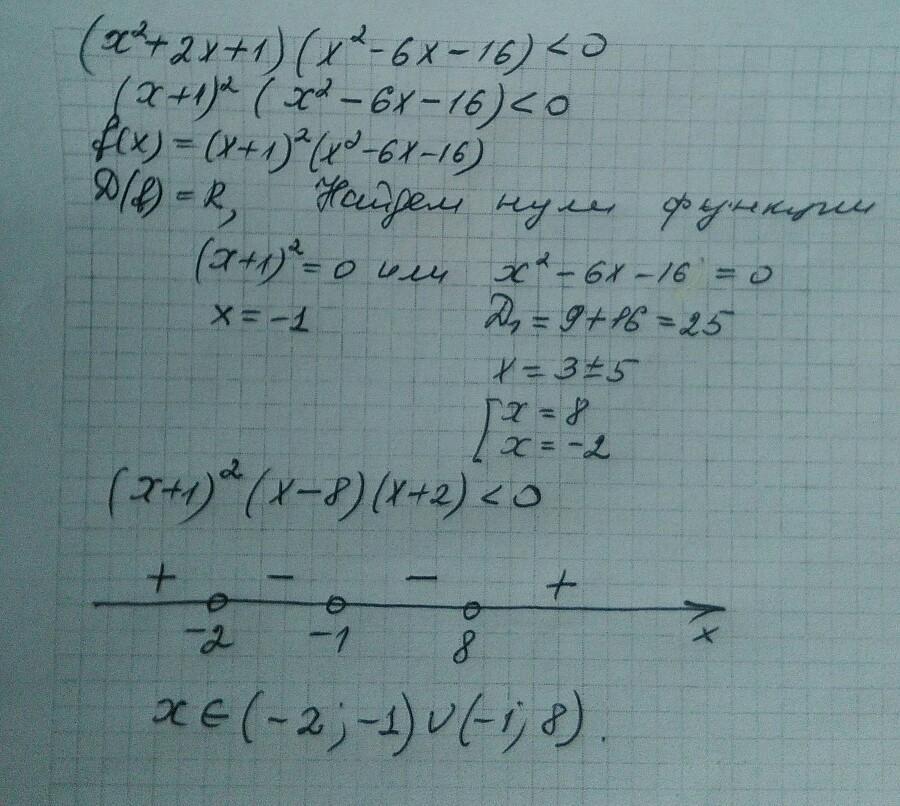 (x²+2x+1)(x²-6x-16)<0
(x+1)² (x²-6x-16)<0
f(x)=(x+1)²(x²-6x-16)
D(f)=R, Найдем нули функции
(x+1)²=0 или x²-6x-16=0
x=-1 D₁=9+16=25
x=3±5
[x=8
x=-2
(x+1)²(x-8)(x+2)<0
+ - - +
-2 -1 8 x
x∈(-2;-1)∪(-1;8).